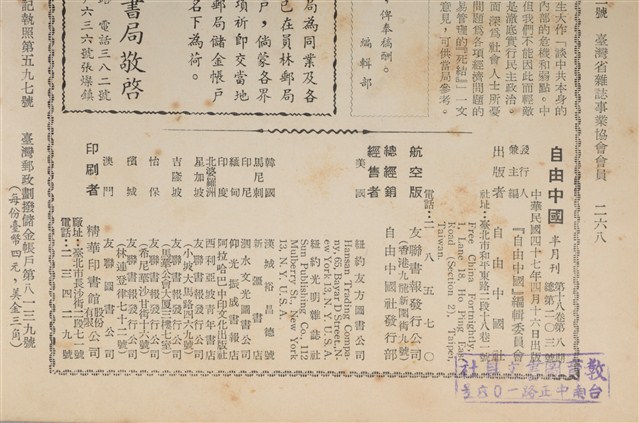 號　臺灣省雜誌事業協會會員　二六八
生大作「談中共本身的
內部的危機和弱點。中
但我們不能因此而輕敵
是澈底實行民主政治。
而深為社會人士所憂
問題為各項經濟問題的
易管理的『死結』」一文
意見，可供當局參考。
俾奉稿酬。
編輯部
局為同業及各
已在員林郵局
戶，倘蒙各界
項祈即交當地
郵局儲金帳戶
名下為荷。
書局敬啓
電話三八二號
六三六號張燦鎮
自由中國　半月刊　第十八卷第八期
總第二〇三號
中華民國四十七年四月十六日出版
發行人
兼主編　『自由中國』編輯委員會
出版者　自由中國社
社址：臺北市和平東路二段十八巷一號
Free China Fortnightly,
1, Lane 18, Ho Ping East
Road (Section 2), Taipei,
Taiwan.
電話：二八五七〇
航空版　友聯書報發行公司
（香港九龍新圍街九號）
總經銷　自由中國社發行部
經售者
美國　紐約友方圖書公司
Hansan Trading Compa-
ny, 65, Bayard Street, N-
ew York 13, N. Y. U. S. A.
紐約光明雜誌社
Sun Publishing Co., 112
Mulberry St., New York
13, N. Y. U. S. A.
韓國　漢城裕昌德號
馬尼剌　新疆書店
印尼
緬甸
印度
北婆羅洲
星加坡
吉隆坡
怡保
檳城
澳門　友聯圖書公司
印刷者　精華印書館股份有限公司
廠址：臺北市長沙街二段七一號
電話：二三四二九號
記執照第五九七號　臺灣郵政劃撥儲金帳戶第八一三九號
（每份臺幣四元，美金三角）
台南中正路一〇八號